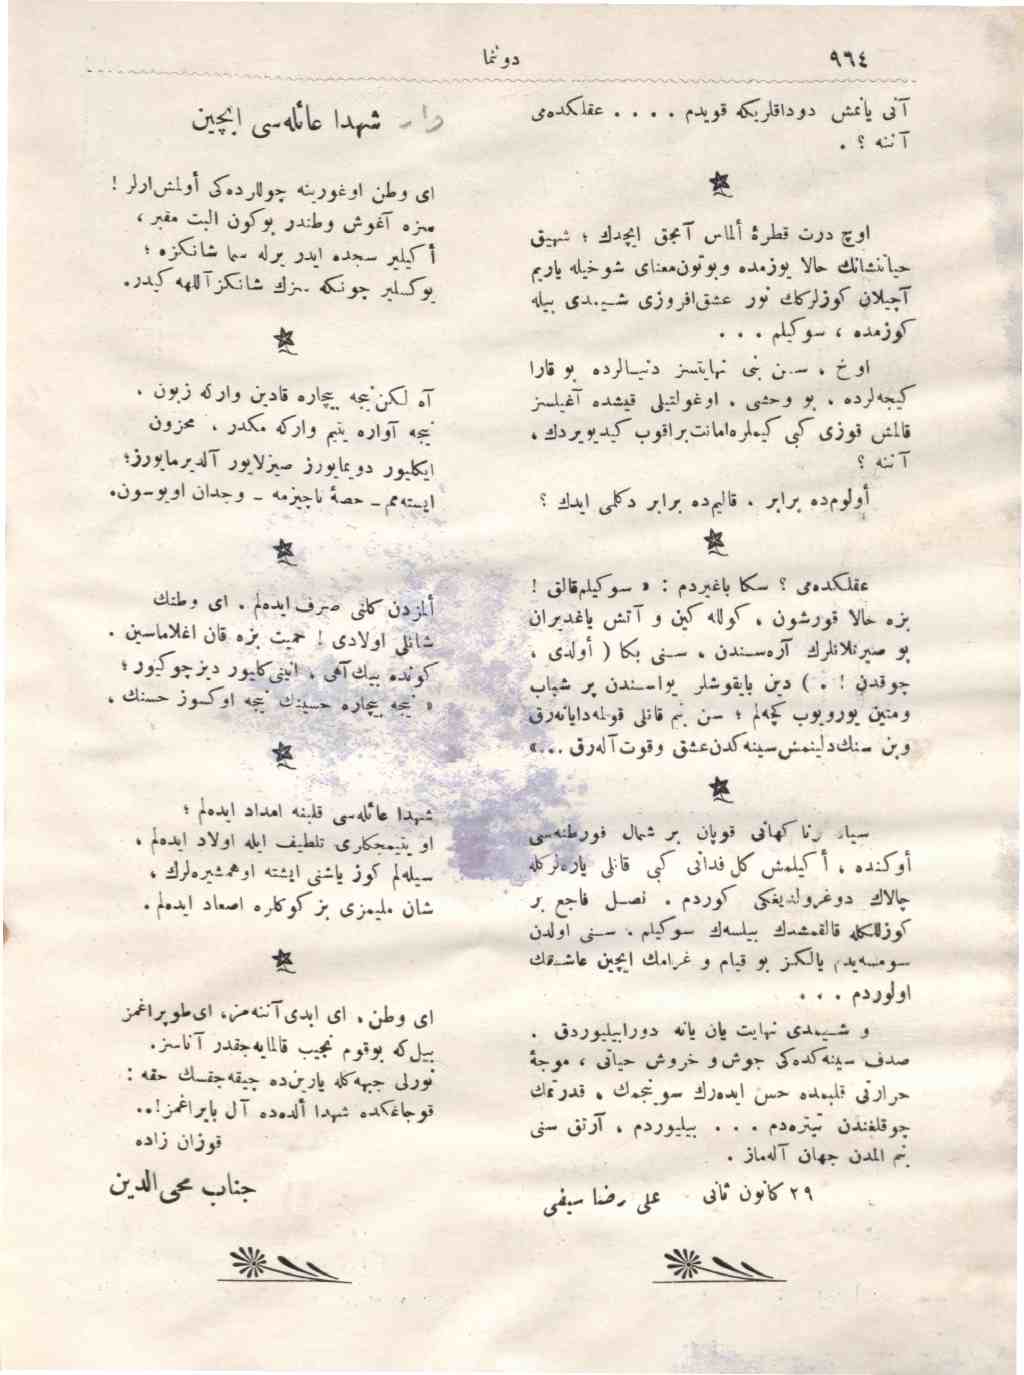 ٩٦٤
دوننما
آنی یانمش دوداقلریكه قویدم . . . . عقلكده‌می
آننه ؟ .
اوچ درت قطرهٔ ألماس آنجق ایچدك ؛ شهیق
حیاتنشانك حالا یوزمده وبوتون معنای شوخیله یاریم
آچیلان كوزلركك نور عشق‌افروزی شیمدی بیله
كوزمده ، سوكیلم . . .
اوخ ، سن بنی نهایتسز دنیالرده بو قارا
كیجه‌لرده ، بو وحشی ، اوغولتیلی قیشده آغیلسز
قالمش قوزی كبی كیملره امانت براقوب كیدیویردك ،
آننه ؟
أولوم‌ده برابر ، قالیم‌ده برابر دكلمی ایدك ؟
عقلكده‌می ؟ سكا باغیردم : « سوكیلم قالق !
بزه حالا قورشون ، كولله كین و آتش یاغدیران
بو صیرتلانلرك آره‌سندن ، سنی بكا ( أولدی ،
چوقدن ! . ) دین بایقوشلر یواسندن پر شباب
ومتین یورویوب كچه‌لم ؛ سن بنم قانلی قولمه دایانه‌رق
وبن سنك دلینمش سینه‌كدن عشق وقوت آله‌رق ...»
كهانی قوپان بر شمال فورطنه‌سی
أوكنده ، أكیلمش كل فدانی كبی قانلی یاره‌لركله
چالاك دوغرولدیغكی كوردم . نصل فاجع بر
كوزللكله قالقمشدك بیلسه‌ك سوكیلم . سنی اولدن
سومسه‌یدم یالكز بو قیام و غرامك ایچین عاشقك
اولوردم . . .
و شیمدی نهایت یان یانه دورابیلیوردق .
صدف سینه‌كده‌كی جوش و خروش حیاتی ، موجهٔ
حرارتی قلبمده حس ایده‌رك سوینجمك ، قدرتمك
چوقلغندن تیتره‌دم . . . بیلیوردم ، آرتق سنی
بنم المدن جهان آله‌ماز .
٢٩ كانون ثانی علی رضا سیفی
شهدا عائله‌سی ایچین
ای وطن اوغورینه چوللرده‌كی أولمش ارلر !
سزه آغوش وطندر بوكون البت مقبر ،
أكیلیر سجده ایدر یرله سما شانكزه ؛
یوكسلیر چونكه سزك شانكز اللهه كیدر.
آه لكن نیجه بیچاره قادین واركه زبون ،
نیجه آواره یتیم واركه مكدر ، محزون
ایكلیور دویمایورز صیزلایور آلدیرمایورز؛
ایسته‌مم ـ حصهٔ ناچیزمه ـ وجدان اویوسون.
ألمزدن كلنی صرف ایده‌لم . ای وطنك
شانلی اولادی ! حمیت بزه قان اغلاماسین .
كوندە بیك آهی ، انینی كلیور دیزچوكیور ؛
« نیجه بیچاره حسینك نیجه اوكسوز حسنك ،
شهدا عائله‌سی قلبنه امداد ایده‌لم ؛
او یتیمجكلری تلطیف ایله اولاد ایده‌لم ،
سیله‌لم كوز یاشنی ایشته او همشیره‌لرك ،
شان ملیمزی بز كوكلره اصعاد ایده‌لم .
ای وطن ، ای ابدی آننه‌مز، ای طوپراغمز
بیل كه بوقوم نجیب قالمایه‌جقدر آناسز.
نورلی جبهه‌كله یارین‌ده چیقه‌جقسك حقه :
قوجاغكده شهدا ألده‌ده آل بایراغمز!..
قوزان زاده
جناب محی‌الدین